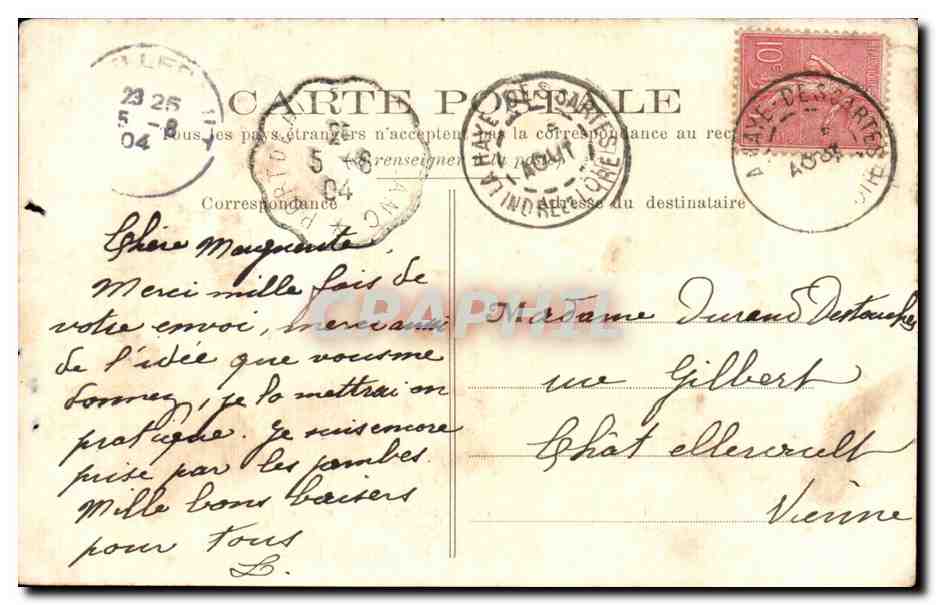 CARTE POSTALE
Tous les pays étrangers n'acceptent pas la correspondance au recto
(se renseigner à la poste)
Correspondance
Adresse du destinataire
23 25
5 - 8
04
PORT DE
5 - 8
04
LA HAYE-DESCARTES
5
AOUT
INDRE ET LOIRE
LA HAYE-DESCARTES
5
AOUT
10
Chère Marguerite,
Merci mille fois de
votre envoi, merci aussi
de l'idée que vous me
donnez, je la mettrai en
pratique. Je suis encore
prise par les jambes.
Mille bons baisers
pour tous
L.
Madame Durand Destouches
rue Gilbert
Châtellerault
Vienne
CRAPHIL